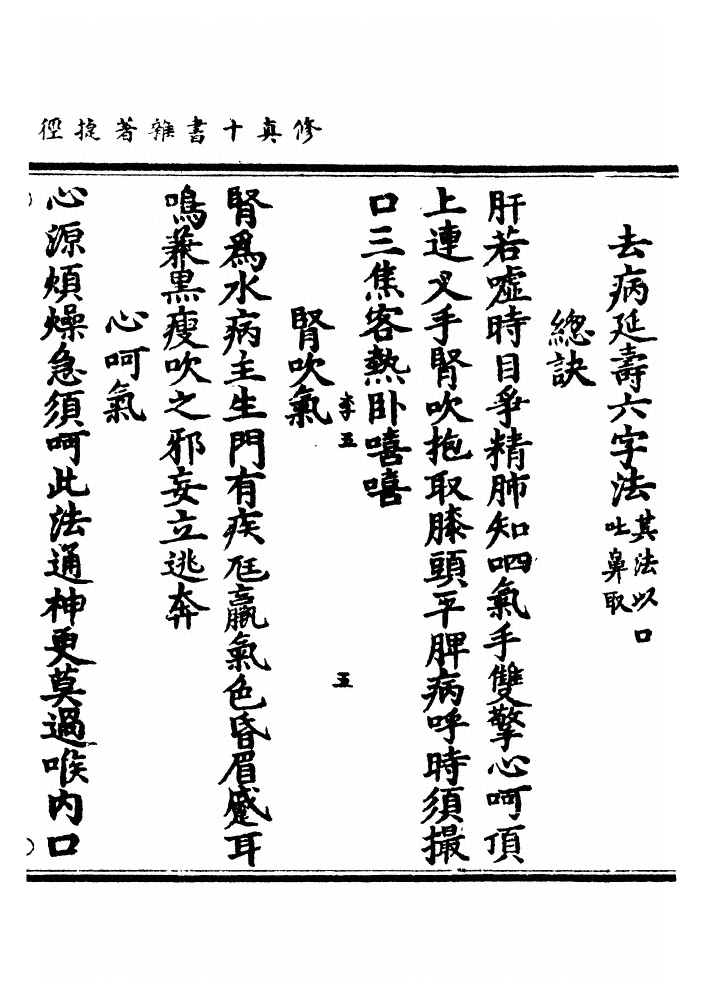 修真十書雜著捷徑
去病延壽六字法其法以口
吐鼻取
總訣
肝若噓時目爭精肺知呬氣手雙擎心呵頂
上連叉手腎吹抱取膝頭平脾病呼時須撮
口三焦客熱卧嘻嘻
李五
五
腎吹氣
腎爲水病主生門有疾尫羸氣色昏眉蹙耳
鳴兼黑瘦吹之邪妄立逃奔
心呵氣
心源煩燥急須呵此法通神更莫過喉內口